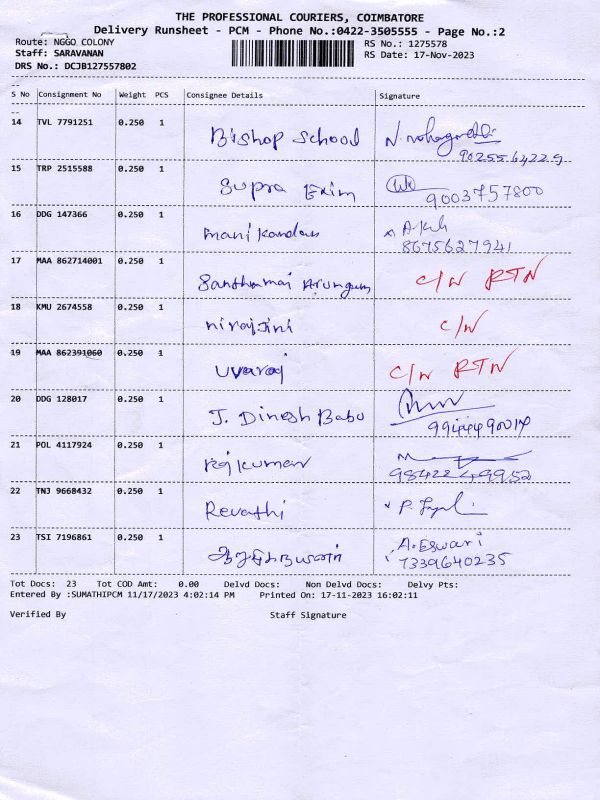 THE PROFESSIONAL COURIERS, COIMBATORE
Delivery Runsheet - PCM - Phone No.:0422-3505555 - Page No.:2
Route: NGGO COLONY RS No.: 1275578
Staff: SARAVANAN RS Date: 17-Nov-2023
DRS No.: DCJB127557802
S No Consignment No Weight PCS Consignee Details Signature
14 TVL 7791251 0.250 1
Bishop School
90255 64229
15 TRP 2515588 0.250 1
Supra Exim 9003757800
16 DDG 147366 0.250 1
mani kandan
8675627941
17 MAA 862714001 0.250 1
Santhamai Arumgum C/N RTN
18 KMU 2674558 0.250 1
nirajini C/N
19 MAA 862391060 0.250 1
uvaraj C/N RTN
20 DDG 128017 0.250 1
J. Dinesh Babu
21 POL 4117924 0.250 1
rajkumar
98422 49952
22 TNJ 9668432 0.250 1
Revathi P.
23 TSI 7196861 0.250 1
A. Eswari
7339640235
Tot Docs: 23 Tot COD Amt: 0.00 Delvd Docs: Non Delvd Docs: Delvy Pts:
Entered By :SUMATHIPCM 11/17/2023 4:02:14 PM Printed On: 17-11-2023 16:02:11
Verified By Staff Signature